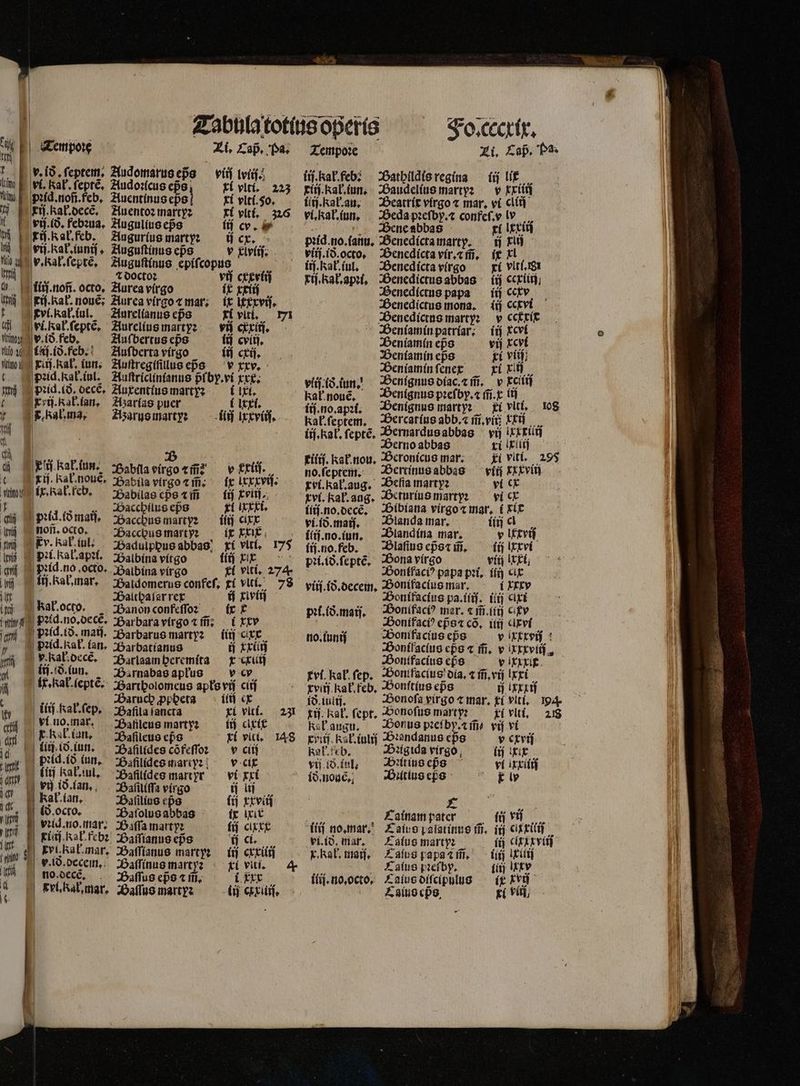 Tabula totius operis Fo.cccxix.
Tempore Li. Cap. Pa.
v. id. septem. Audomarus eps viij lviij.
vi. kal. septe. Audoricus eps, xi vlti. 223
prid. non. feb. Auentinus eps xi vlti. 50.
xij. kal. dece. Auentor martyr xi vlti. 326
vij. id. februa. Augulius eps iij cv.
xij. kal. feb. Augurius martyr ij cx.
vij. kal. iunij, Augustinus eps v xlviij.
v. kal. septe. Augustinus episcopus
⁊ doctor vij cxxviij
iiij. non. octo. Aurea virgo ix xxiij
xij. kal. noue. Aurea virgo ⁊ mar. ix lxxxvij.
xvi. kal. iul. Aurelianus eps xi vlti. 171
vi. kal. septe. Aurelius martyr vij cxxiij.
v. id. feb. Ausbertus eps iij cviij.
iiij. id. feb. Ausberta virgo iij cxij.
xiij. kal. iun. Austregisillus eps v xxv.
prid. kal. iul. Austriclinianus psby. vi xxx.
prid. id. dece. Auxentius martyr i lxi.
xvij. kal. ian. Azarias puer i lxxi.
x. kal. ma. Azarus martyr iiij lxxviij.
B
xiij. kal. iun. Babilla virgo ⁊ m̃. v xxiij.
xij. kal. noue. Babila virgo ⁊ m̃. ix lxxxvij.
ix. kal. feb. Babilas eps ⁊ m̃ iij xviij.
Bacchilus eps xi lxxxi.
prid. id maij. Bacchus martyr iiij cixx
non. octo. Bacchus martyr ix xxix
xv. kal. iul. Badulphus abbas xi vlti. 175
pri. kal. apri. Balbina virgo iiij xix
prid. no. octo. Balbina virgo xi vlti. 274
iij. kal. mar. Baldomerus confes. xi vlti. 78
Balthasar rex ij xlviij
kal. octo. Banon confessor ix x
prid. no. dece. Barbara virgo ⁊ m̃. i xxv
prid. id. maij. Barbarus martyr iiij cixx
prid. kal. ian. Barbatianus ij xxiij
v. kal. dece. Barlaam heremita x cxiij
iij. id. iun. Barnabas aplus v cv
ix. kal. septe. Bartholomeus apls vij ciij
Baruch ppheta iiij cx
iiij. kal. sep. Basila sancta xi vlti. 231
vi no. mar. Basileus martyr iij clxix
x. kal. ian. Basileus eps xi vlti. 148
iiij. id. iun. Basilides cofessor v ciij
prid. id iun. Basilides martyr v cix
iiij kal. iul. Basilides martyr vi xxi
vij id. ian. Basilissa virgo ij iij
kal. ian. Basilius eps iij xxviij
id. octo. Basolus abbas ix lxix
prid. no. mar. Bassa martyr iij cixxx
xiiij. kal. febr Bassianus eps ij ci.
xvi. kal. mar. Bassianus martyr iij cxxiiij
v. id. decem. Bassinus martyr xi vlti. 4
no. dece. Bassus eps ⁊ m̃. i xxx
xvi. kal. mar. Bassus martyr iij cxxiiij.
Tempore Li. Cap. Pa.
iij. kal. feb. Bathildis regina iij lix
xiij. kal. iun. Baudelius martyr v xxiiij
iiij. kal. au. Beatrix virgo ⁊ mar. vi cliij
vi. kal. iun. Beda presby. ⁊ confes. v lv
Bene abbas xi lxxiij
prid. no. ianu. Benedicta marty. ij xiij
viij. id. octo. Benedicta vir. ⁊ m̃. ix xl
iij. kal. iul. Benedicta virgo xi vlti. 181
xij. kal. apri. Benedictus abbas iij ccxiiij
Benedictus papa iij ccxv
Benedictus mona. iij ccxvi
Benedictus martyr v ccxxix
Beniamin patriar. iij xcvi
Beniamin eps vij xcvi
Beniamin eps xi viij
Beniamin senex xi xiij
viij. id. iun. Benignus diac. ⁊ m̃. v xciiij
kal. noue. Benignus presby. ⁊ m̃. x iij
iij. no. apri. Benignus martyr xi vlti. 108
kal. septem. Bercarius abb. ⁊ m̃. vij xxij
iij. kal. septe. Bernardus abbas vij lxxxiiij
Berno abbas xi lxiiij
xiiij. kal. nou. Beronicus mar. xi vlti. 295
no. septem. Bertinus abbas viij xxxviij
xvi. kal. aug. Besia martyr vi cx
xvi. kal. aug. Beturius martyr vi cx
iiij. no. dece. Bibiana virgo ⁊ mar. i xix
vi. id. maij. Blanda mar. iiij cl
iiij. no. iun. Blandina mar. v lxxvij
iij. no. feb. Blasius eps ⁊ m̃. iij lxxvi
pri. id. septe. Bona virgo viij lxxi.
Bonifaci⁹ papa pri. iiij cix
viij. id. decem. Bonifacius mar. i xxxv
Bonifacius pa. iiij. iiij cixi
pri. id. maij. Bonifaci⁹ mar. ⁊ m̃. iiij cixv
Bonifaci⁹ eps ⁊ co. iiij cixvi
no. iunij Bonifacius eps v lxxxvij
Bonifacius eps ⁊ m̃. v lxxxviij.
Bonifacius eps v lxxxix
xvi. kal. sep. Bonifacius dia. ⁊ m̃. vij lxxi
xviij kal. feb. Bonitus eps ij lxxxij
id. iulij. Bonosa virgo ⁊ mar. xi vlti. 194
xij. kal. sept. Bonosus martyr xi vlti. 218
kal augu. Bonus presby. ⁊ m̃. vij vi
xviij. kal. iulij Brandanus eps v cxvij
kal. feb. Brigida virgo iij lxix
vij. id. iul. Britius eps vi lxxiiij
id. noue. Britius eps x lv
C
Cainam pater iij vij
iiij no. mar. Caius palatinus m̃. iij cixxiiij
vi. id. mar. Caius martyr iij clxxxviij
x. kal. maij. Caius papa ⁊ m̃. iiij lxiiij
Caius presby. iiij lxxv
iiij. no. octo. Caius discipulus ix xvij
Caius eps xi viij